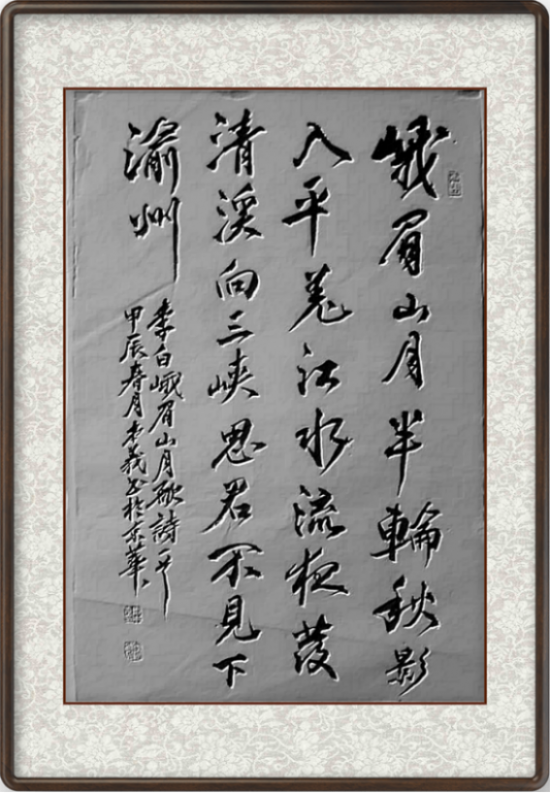 峨眉山月半輪秋影
入平羌江水流夜發
清溪向三峽思君不見下
渝州
李白峨眉山月歌詩一首
甲辰春月 義书於京華